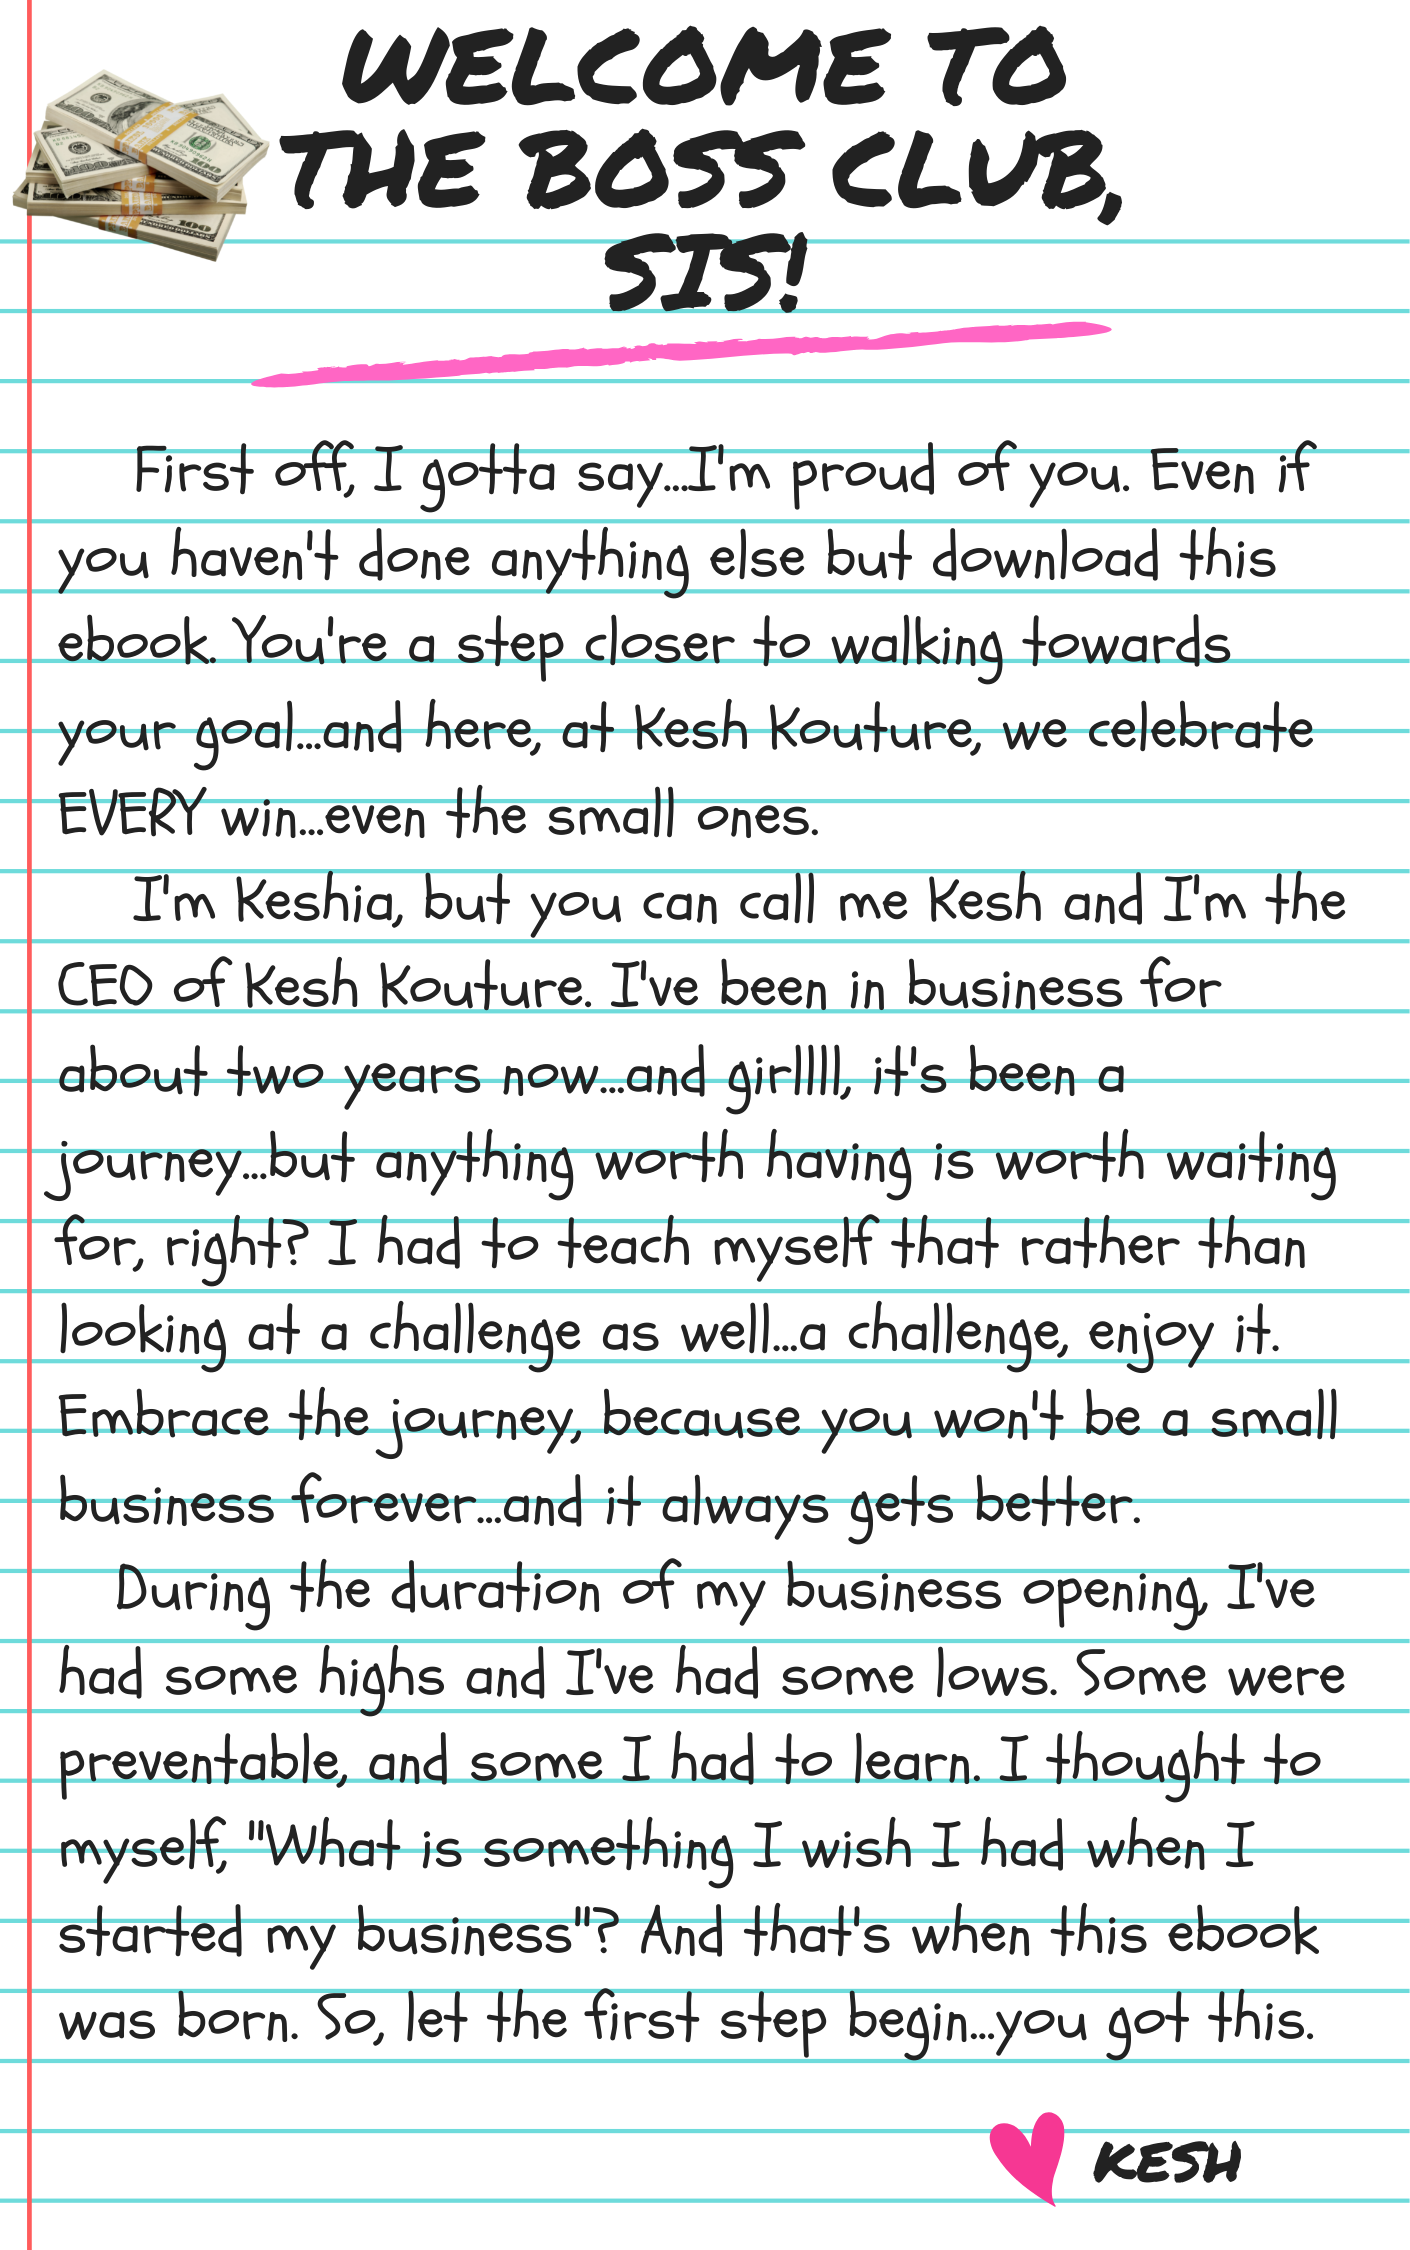 WELCOME TO
THE BOSS CLUB,
SIS!
First off, I gotta say...I'm proud of you. Even if
you haven't done anything else but download this
ebook. You're a step closer to walking towards
your goal...and here, at Kesh Kouture, we celebrate
EVERY win...even the small ones.
I'm Keshia, but you can call me Kesh and I'm the
CEO of Kesh Kouture. I've been in business for
about two years now...and girllll, it's been a
journey...but anything worth having is worth waiting
for, right? I had to teach myself that rather than
looking at a challenge as well...a challenge, enjoy it.
Embrace the journey, because you won't be a small
business forever...and it always gets better.
During the duration of my business opening, I've
had some highs and I've had some lows. Some were
preventable, and some I had to learn. I thought to
myself, "What is something I wish I had when I
started my business"? And that's when this ebook
was born. So, let the first step begin...you got this.
KESH